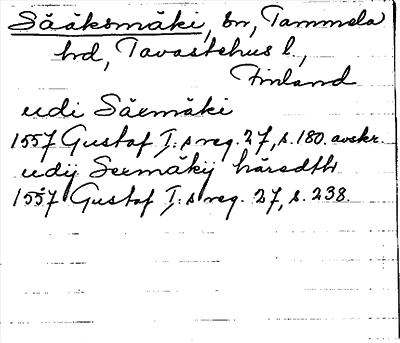 Sääksmäki, sn, Tammela
hd, Tavastehus l.,
Finland
udi Säemäki
1557 Gustaf I:s reg. 27, s. 180. avskr.
udij Seemäkij häradth
1557 Gustaf I:s reg. 27, s. 238.